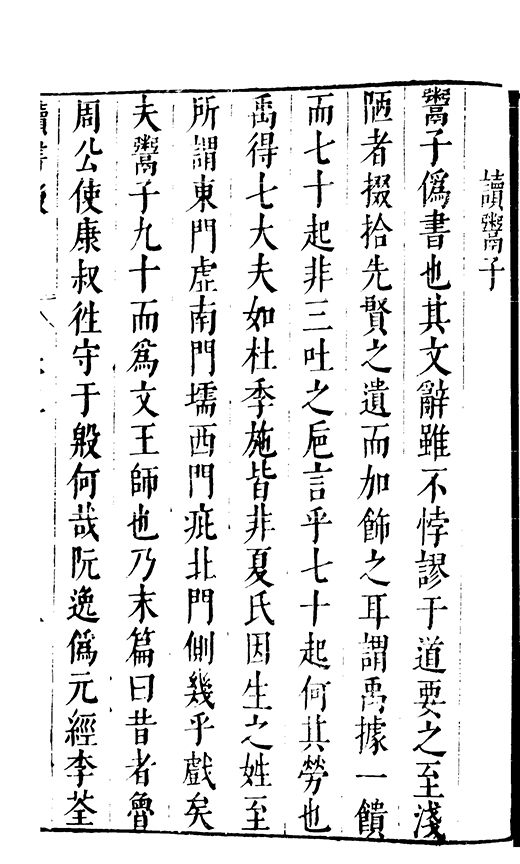 讀鬻子
鬻子僞書也其文辭雖不悖謬于道要之至淺
陋者掇拾先賢之遺而加飾之耳謂禹據一饋
而七十起非三吐之巵言乎七十起何其勞也
禹得七大夫如杜季施皆非夏氏因生之姓至
所謂東門虛南門壖西門疵北門側幾乎戲矣
夫鬻子九十而爲文王師也乃末篇曰昔者魯
周公使康叔徃守于殷何哉阮逸僞元經李荃
讀書後